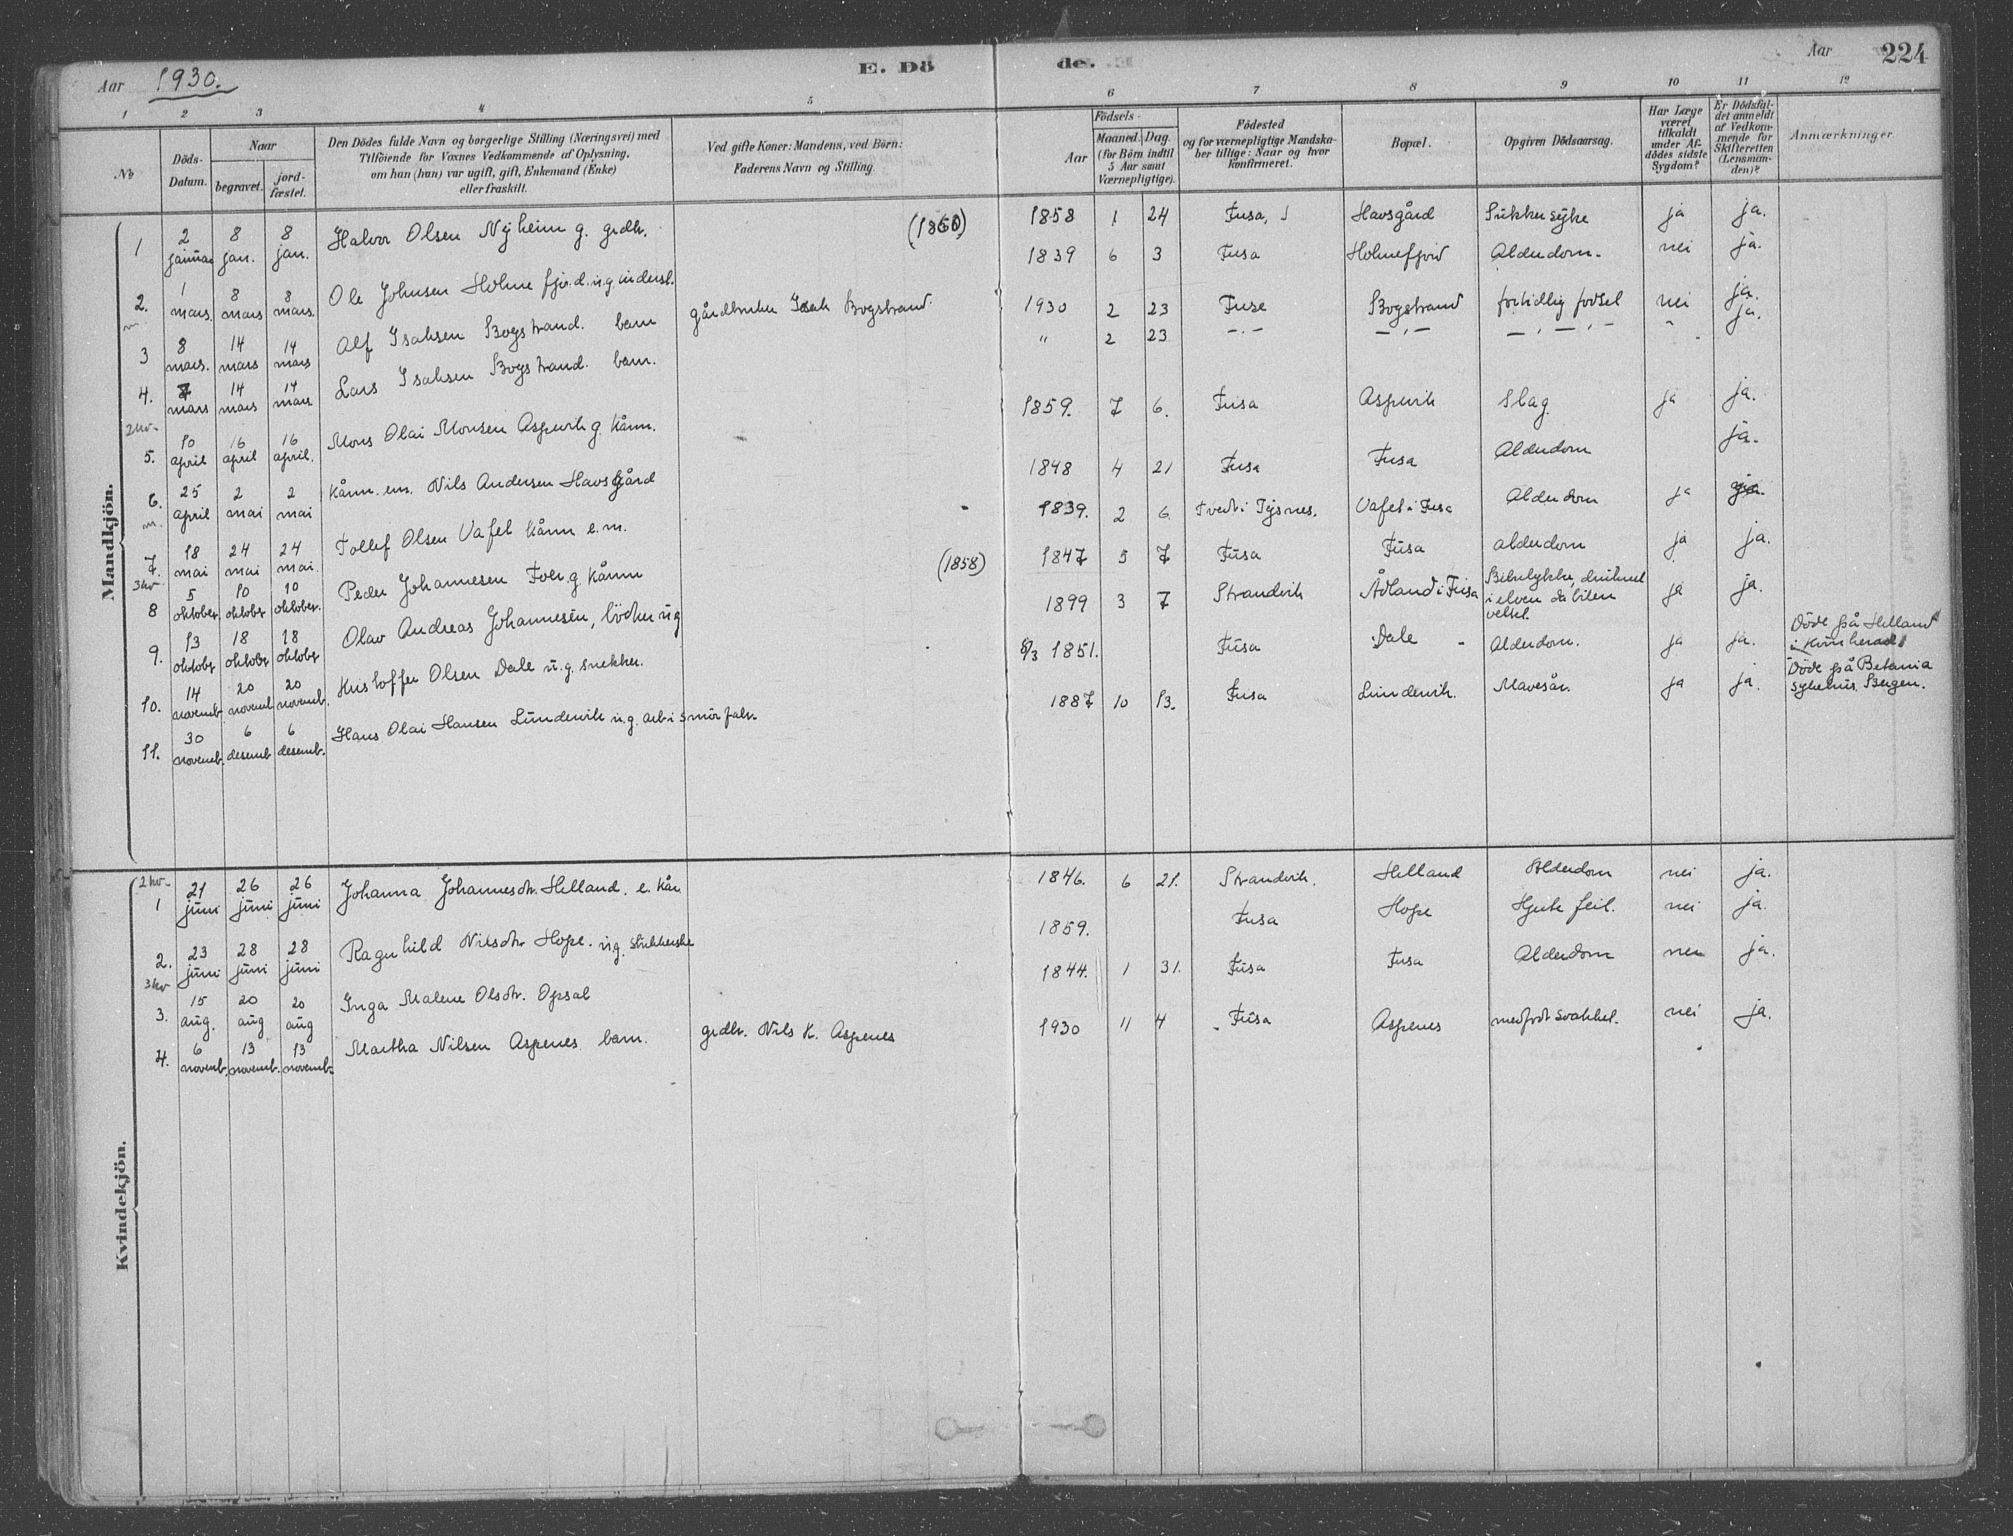 Aar 1930.
E. Dö
de.
Aar
224
1 2 3 4 5 6 7 8 9 10 11 12
No
Döds-Datum.
Naar
begravet.
jord-fæstet.
Den Dödes fulde Navn og borgerlige Stilling (Næringsvei) med
Tilföiende for Voxnes Vedkommende af Oplysning,
om han (hun) var ugift, gift, Enkemand (Enke)
eller fraskilt.
Ved gifte Koner: Mandens, ved Börn:
Faderens Navn og Stilling.
Födsels-
Aar
Maaned. Dag.
(for Börn indtil
5 Aar samt
Værnepligtige).
Födested
og for værnepligtige Mandska-
ber tillige: Naar og hvor
konfirmeret.
Bopæl.
Opgiven Dödsaarsag.
Har Læge
været
tilkaldt
under Af-
dödes sidste
Sygdom?
Er Dödsfal-
det anmeldt
af Vedkom-
mende for
Skifteretten
(Lensman-
den)?
Anmærkninger.
Mandkjön.
1 2 januar 8 jan. 8 jan. Halvor Olsen Nyheim g. grdbr. 1858 1 24 Fusa, Havsgård Sukkersyke ja ja.
2. 1 mars. 8 mars 8 mars. Ole Johnsen Holmefjord. u.g. inderst. 1839 6 3 Fusa Holmefjord Alderdom. nei ja.
m.
3 8 mars. 14 mars 14 mars Alf Isaksen Bogstrand. barn gårdbruker Isak Bogstrand. 1930 2 23 Fusa Bogstrand fortidlig fødsel nei ja.
4. 7 mars 14 mars 14 mars. Lars Isaksen Bogstrand. barn. " 2 23 —"— —"— —"—"— " ja.
2 kv.
5. 10 april 16 april 16 april. Mons Olai Monsen Aspevik g. kårm. 1859. 7 6. Fusa Aspevik Slag ja ja.
6. 25 april 2 mai 2 mai kårm. em. Nils Andersen Havsgård 1848 4 21 Fusa Fusa Alderdom ja.
m.
7. 18 mai 24 mai 24 mai. Tollef Olsen Vafel kårm e.m. 1839. 2 6. Tvedt i Tysnes. Vafel i Fusa Alderdom ja ja.
3 kv
8 5 oktober. 10 oktober 10 oktober. Peder Johannesen g. kårm (1858) 1847 5 7 Fusa Fusa alderdom ja ja.
9. 13 oktober 18 oktober 18 oktober Olav Andreas Johannesen, bödker u g 1899 3 7 Strandvik Ådland i Fusa Bilulykke, druknet
i elven da bilen
veltet. ja ja.
10. 14 novemb. 20 novemb. 20 novemb. Kristoffer Olsen Dale u.g. snekker. 8/3 1851. Fusa Dale Alderdom. ja ja. Döde på Helland
i Kvinherad
11. 30 novemb. 6 desemb 6 desemb. Hans Olai Hansen Lundervik u.g. arb i smörfabr. 1887 10 13. Fusa Lundervik. Mavesår. ja ja. Döde på Betania
sykehus. Bergen.
Kvindekjön.
2 kv.
1 21 juni 26 juni 26 juni Johanna Johannesdtr. Helland. e. kår. 1846. 6 21. Strandvik. Helland Alderdom nei ja.
2. 23 juni 28 juni 28 juni Ragnhild Nilsdtr. Hope. u.g. 1859. Fusa Hope Hjertefeil. nei ja.
3 kv
3. 15 aug. 20 aug 20 aug Inga Malene Olsdtr. Opsal 1844. 1 31. Fusa Fusa Alderdom nei ja.
4. 6 novemb. 13 novemb. 13 novemb. Martha Nilsen Aspenes barn. grdbr. Nils K. Aspenes 1930 11 4 Fusa Aspenes medfödt svakhet. nei ja.